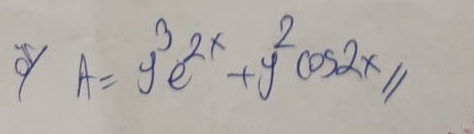 A = y³e²ˣ + y² cos2x //